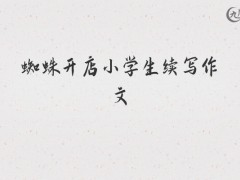 蜘蛛开店小学生续写作
文